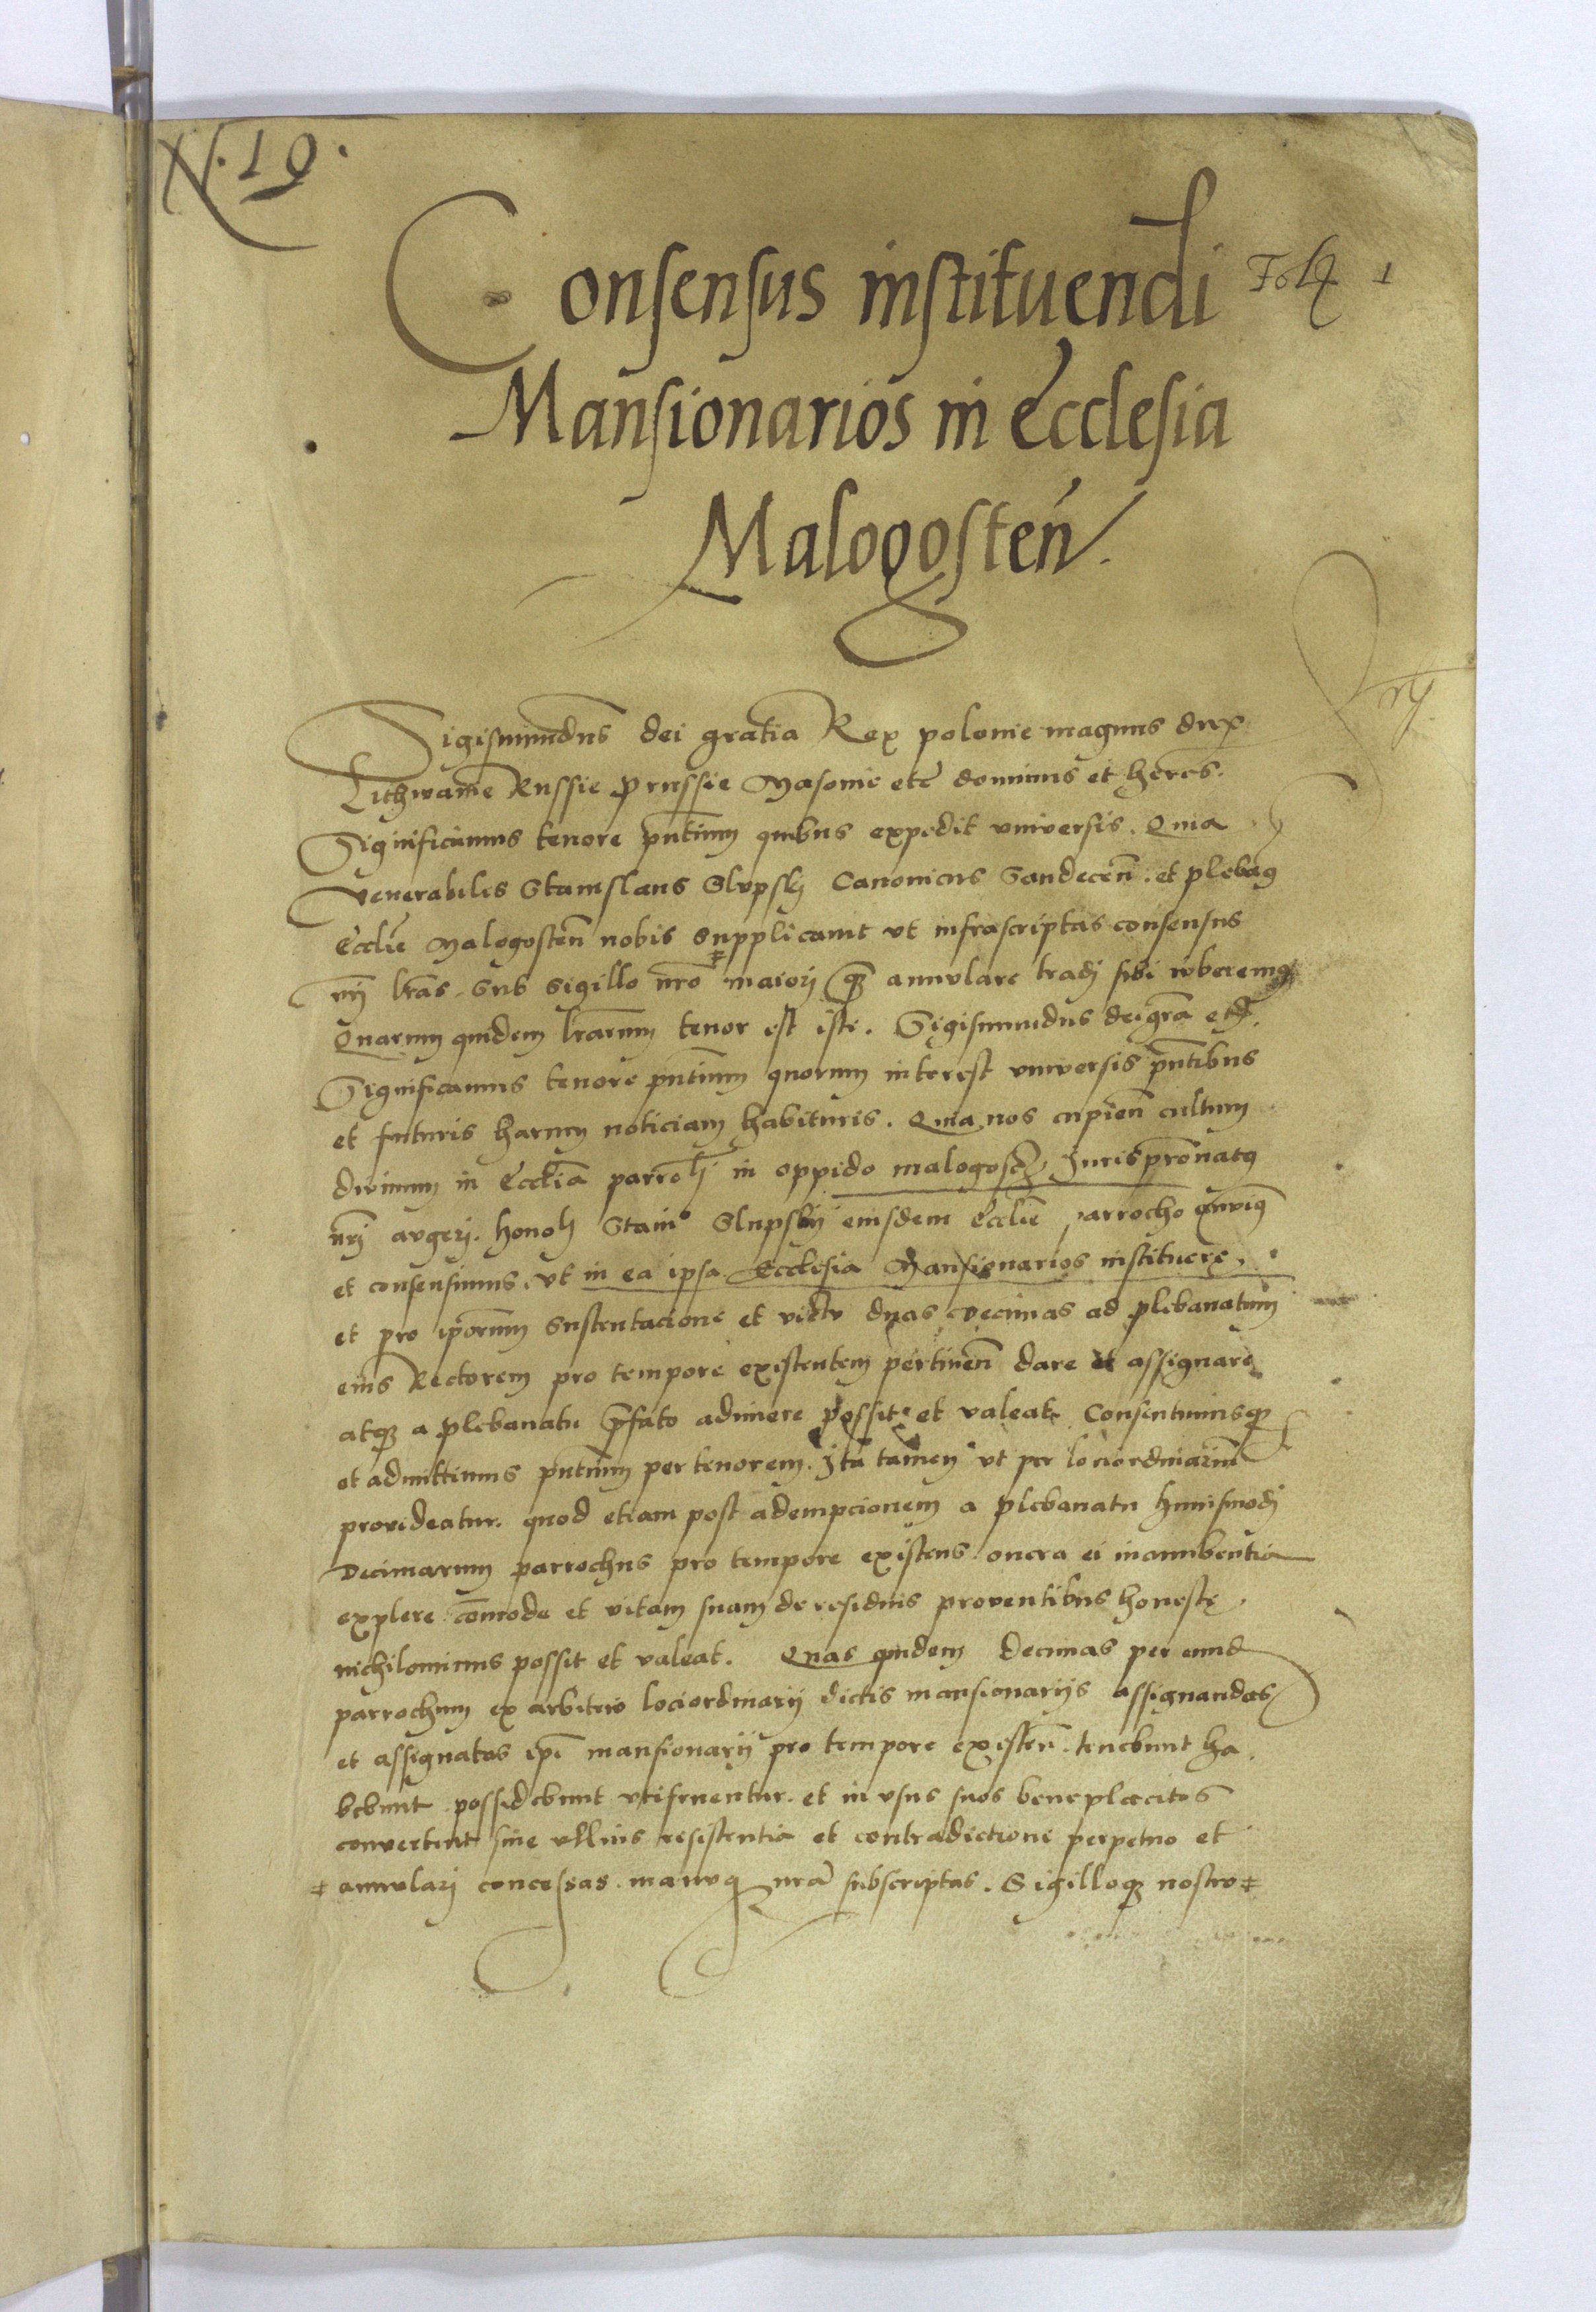 N. 19.
Consensus instituendi
Folꝝ 1
Mansionarios in Ecclesia
Malogosten̄.
Sigismundus dei gratia Rex polonie magnus dux
Lithwanie Russie Prussie Masovie etc̄ dominus et heres.
Significamus tenore pn̄tium quibus expedit vniversis. Quia
Venerabilis Stanislaus Slupsky Canonicus Sandecen̄. et pleban9
Ecclīe Malogosten̄ nobis supplicavit vt infrascriptas consensus
nr̄j lr̄as. Sub sigillo nr̄o maiorj qꝫ annulare tradj sibi iuberem9
Quarum quidem lr̄arum tenor est iste. Sigismundus dei gr̄a etc̄.
Significamus tenore pn̄tium quorum interest vniversis pn̄tibus
et futuris harum noticiam habituris. Quia nos cupien̄ cultum
divinum in Eccl̄ia parroch̄j in oppido malogoscz Jurispatronat9
nr̄j augerj. honoł Stanio Slupskij eiusdem Ecclīe parrocho an̄uim9
et consensimus, vt in ea ipsa Ecclesia Mansionarios instituere,
et pro ip̄orum sustentacione et victu duas decimas ad plebanatum
eius Rectorem pro tempore existentem pertinen̄ dare et assignare
atqꝫ a plebanatu p̄fato adimere possit et valeat. Consentimusqꝫ
et admittimus pn̄tium per tenorem. Ita tamen vt per lociordinarium
provideatur. quod etiam post adempcionem a plebanatu huiusmodj
Decimarum parrochus pro tempore existens onera ei incumbentia
explere com̄ode et vitam suam de residuis proventibus honeste
nichilominus possit et valeat. Quas quidem Decimas per eund
parrochum ex arbitrio lociordinarij dictis mansionarijs assignandas
et assignatas ip̄i mansionarij pro tempore existen̄. tenebunt ha
bebunt possidebunt vtifruentur. et in vsus suos beneplacitos
convertent sine vllius resistentia et contradictione perpetuo et
# annularj concessas. manuqꝫ nr̄a subscriptas. Sigilloqꝫ nostro #